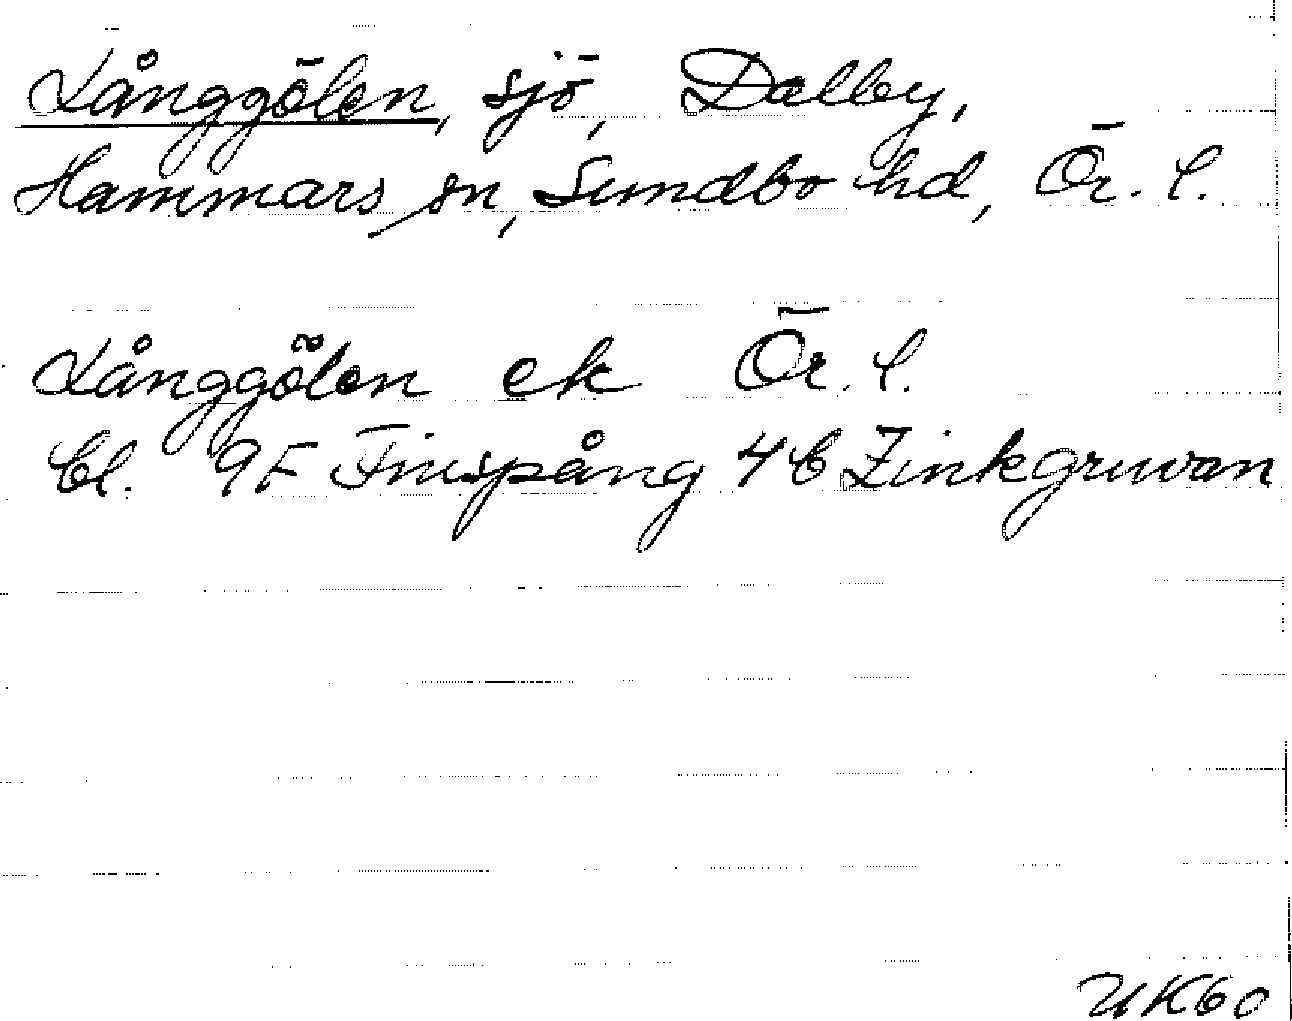 Långgölen, sjö, Dalby,
Hammars sn, Sundbo hd, Ör. l.
Långgölen ek Ör. l.
bl. 9F Finspång 4 b Zinkgruvan
UK60